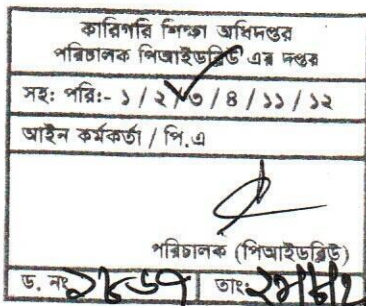 কারিগরি শিক্ষা অধিদপ্তর
পরিচালক পিআইডব্লিউ এর দপ্তর
সহ: পরি:- ১ / ২ / ৩ / ৪ / ১১ / ১২
আইন কর্মকর্তা / পি.এ
পরিচালক (পিআইডব্লিউ)
ড. নং
তাং